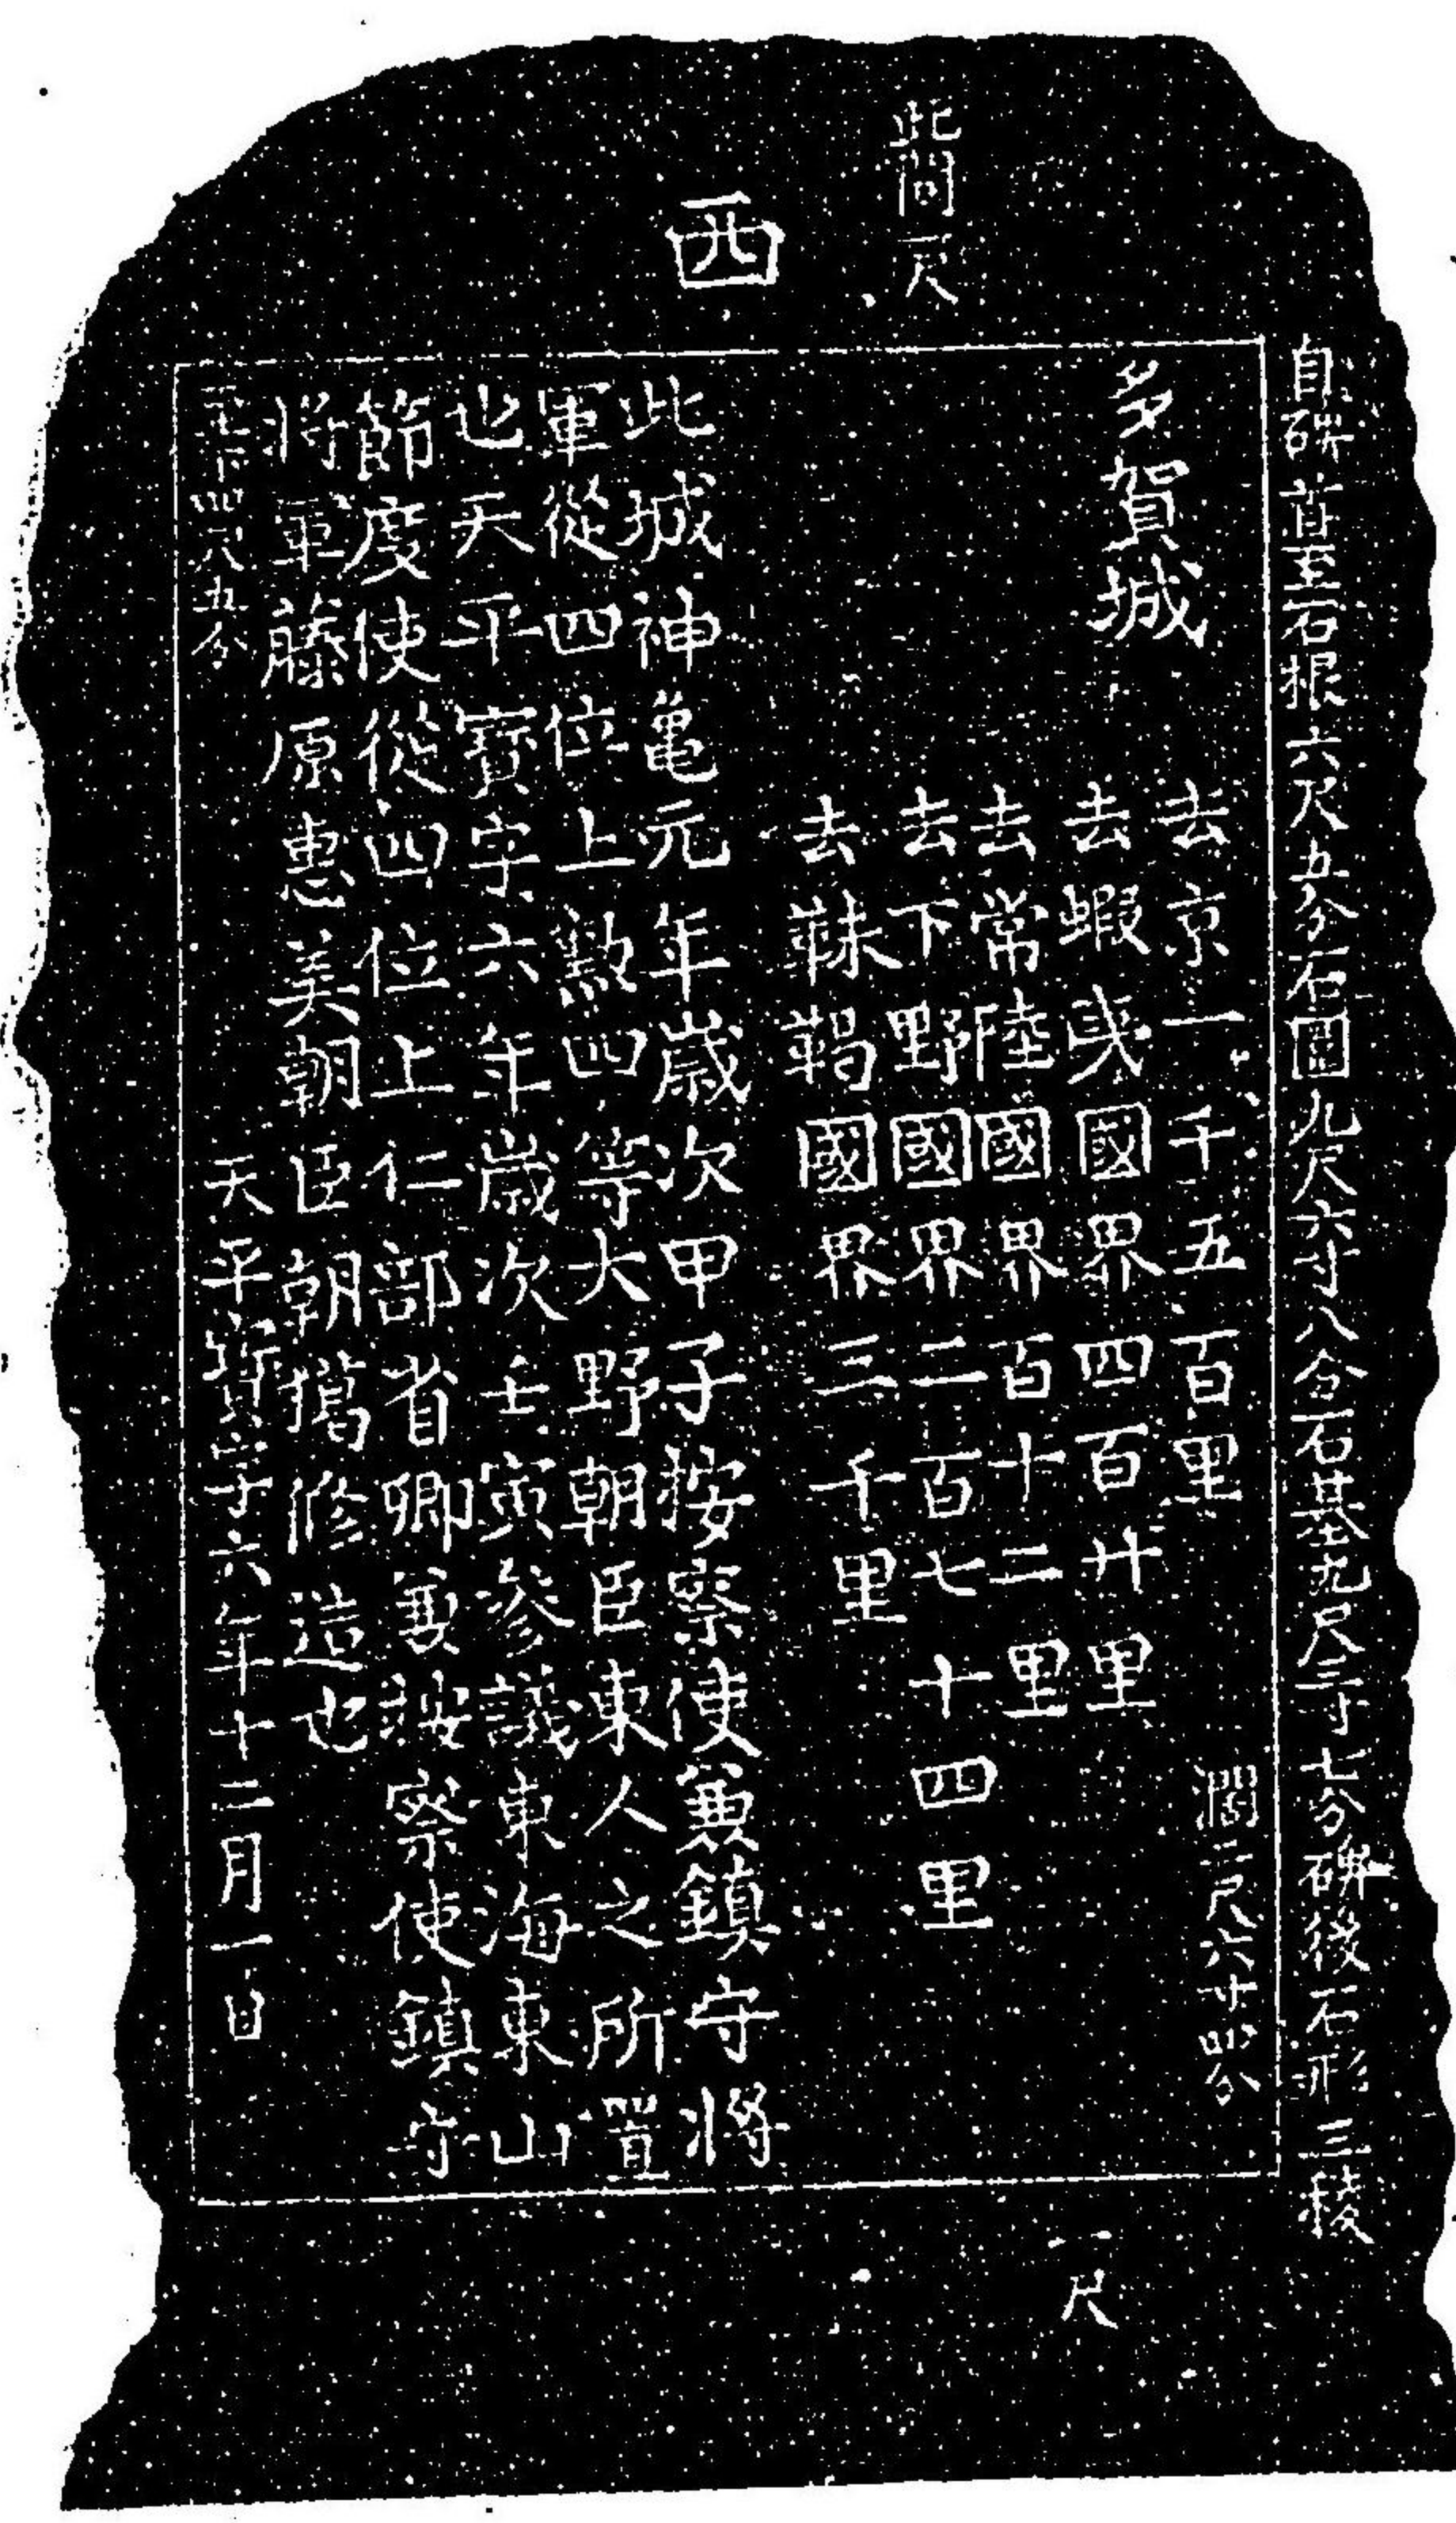 此間一尺
西
自碑首至石根六尺五分石圍九尺六寸八分石基九尺三寸七分碑後石形三稜
多賀城
去京一千五百里
去蝦夷國界四百廿里
去常陸國界四百十二里
去下野國界二百七十四里
去靺鞨國界三千里
濶二尺六寸四分
此城神亀元年歳次甲子按察使兼鎮守將
軍從四位上勲四等大野朝臣東人之所置
也天平寳字六年歳次壬寅參議東海東山
節度使從四位上仁部省卿兼按察使鎮守
將軍藤原惠美朝臣朝獦修造也
天平寳字六年十二月一日
上下四尺五分
一尺